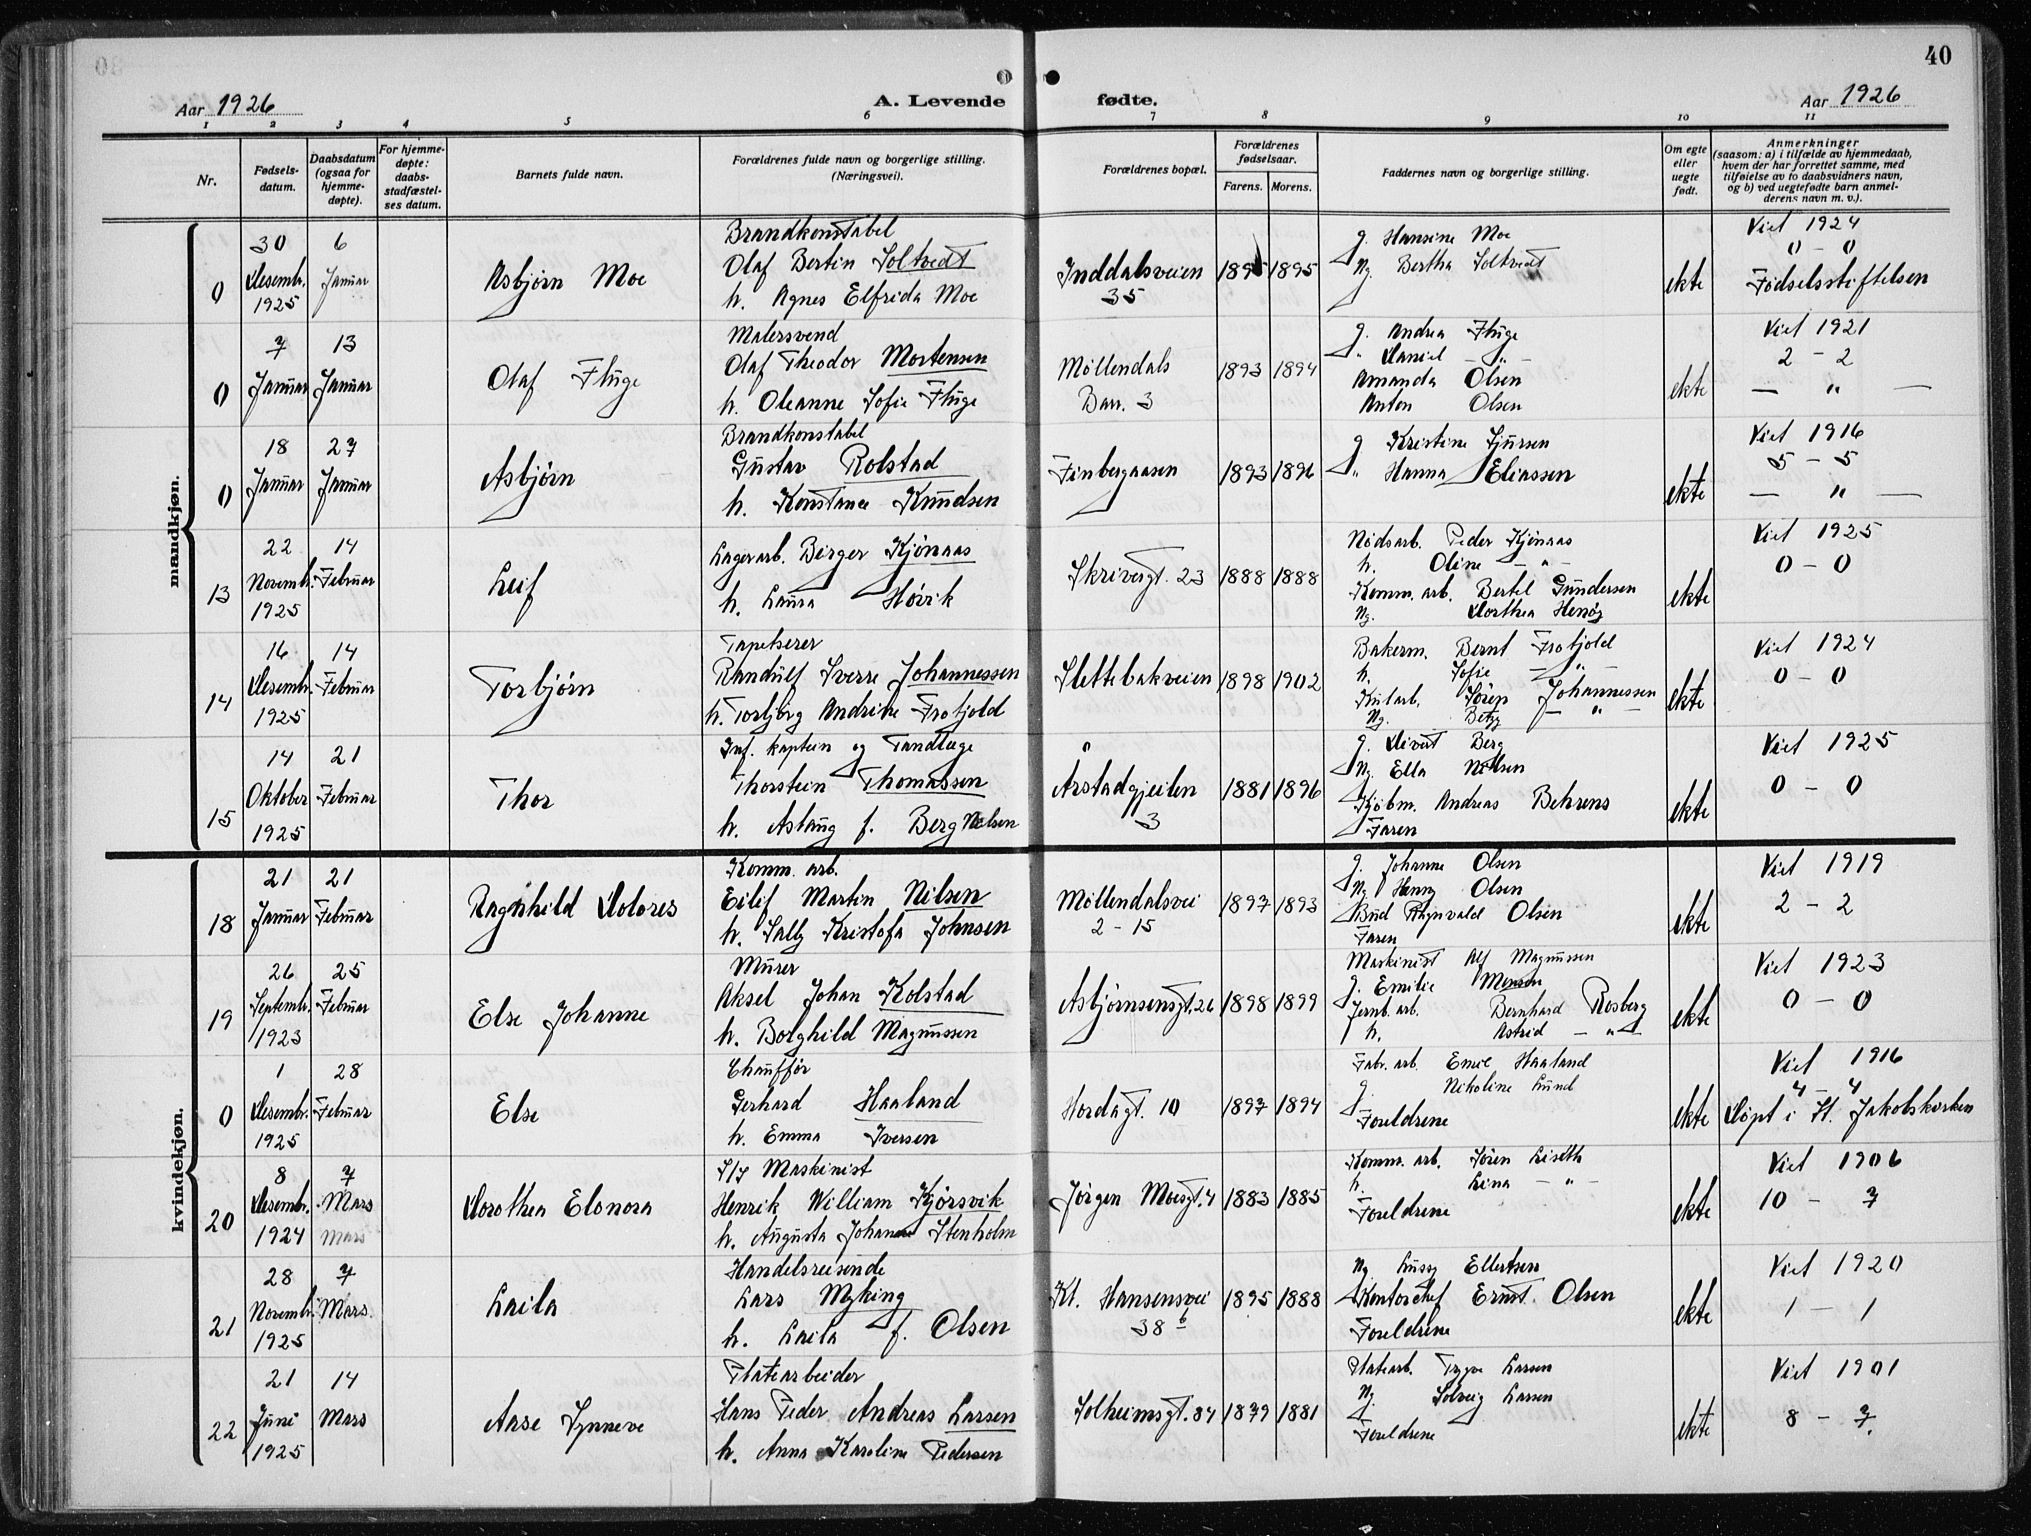 40
Aar 1926
A. Levende fødte.
Aar 1926
1 2 3 4 5 6 7 8 9 10 11
Nr.
Fødsels-
datum.
Daabsdatum
(ogsaa for
hjemme-
døpte).
For hjemme-
døpte:
daabs-
stadfæstel-
ses datum.
Barnets fulde navn.
Forældrenes fulde navn og borgerlige stilling.
(Næringsvei).
Forældrenes bopæl.
Forældrenes
fødselsaar.
Farens. Morens.
Faddernes navn og borgerlige stilling.
Om egte
eller
uegte
født.
Anmerkninger
(saasom: a) i tilfælde av hjemmedaab,
hvem der har forrettet samme, med
tilføielse av to daabsvidners navn,
og b) ved uegtefødte barn anmel-
derens navn m. v.).
mandkjøn.
0
30
Desembr.
1925
6
Januar
Asbjørn Moe
Brandkonstabel
Olaf Bertin Soltvedt
h. Agnes Elfrida Moe
Inddalsveien
35
1895 1895
g. Hansine Moe
Ng. Bertha Soltvedt
ekte
Viet 1924
0 - 0
Fødselsstiftelsen
0
7
Januar
13
Januar
Olaf Fluge
Malersvend
Olaf Theodor Mortensen
h. Oleanne Sofie Fluge
Møllendals
Barr. 3
1893 1894
g. Andrea Fluge
" Daniel - " -
Amanda Olsen
Anton Olsen
ekte
Viet 1921
2 - 2
— " —
0
18
Januar
27
Januar
Asbjørn
Brandkonstabel
Gustav Rolstad
h. Konstance Knudsen
Finbergaasen
1893 1896
g. Kristine Sjursen
" Hanna Eliassen
ekte
Viet 1916
5 - 5
— " —
13
22
Novembr.
1925
14
Februar
Leif
Lagerarb. Berger Kjønaas
h. Laura Høvik
Skrivergt. 23
1888 1888
Nødsarb. Peder Kjønaas
h. Oline - " -
Komm. arb. Bertel Gundersen
Ng. Dorthea Henøy
ekte
Viet 1925
0 - 0
14
16
Desembr.
1925
14
Februar
Torbjørn
Tapetserer
Randulf Sverre Johannessen
h. Torbjørg Andrine Frotjold
Slettebakveien
1898 1902
Bakerm. Bernt Frotjold
h. Sofie - " -
Kularb. Søren Johannessen
Ng. Betzy — " —
ekte
Viet 1924
0 - 0
15
14
Oktober
1925
21
Februar
Thor
Inf. kaptein og Tandlæge
Thorstein Thomassen
h. Aslaug f. Berg Nilsen
Årstadgjeilen
3
1881 1896
g. Sivert Berg
Ng. Ella Nilsen
Kjøbm. Andreas Behrens
Faren
ekte
Viet 1925
0 - 0
kvindekjøn.
18
21
Januar
21
Februar
Ragnhild Dolores
Komm. arb.
Eilif Martin Nilsen
h. Sally Kristofa Johnsen
Møllendalsvei
2 - 15
1897 1893
g. Johanne Olsen
Ng Henny Olsen
Bud Ragnvald Olsen
Faren
ekte
Viet 1919
2 - 2
19
26
Septembr.
1923
25
Februar
Else Johanne
Murer
Aksel Johan Kolstad
h. Bolghild Magnussen
Asbjørnsensgt. 26
1898 1899
Maskinist Alf Magnussen
g. Emilie Monsen
Jernb. arb. Bernhard Rosberg
h. Astrid - " -
ekte
Viet 1923
0 - 0
0
1
Desembr.
1925
28
Februar
Else
Chauffør
Gerhard Haaland
h. Emma Iversen
Hordagt. 10
1897 1894
Fabr. arb. Emil Haaland
g. Nikoline Lund
Foreldrene
ekte
Viet 1916
4 - 4
Døpt i St. Jakobskirken
20
8
Desembr.
1924
7
Mars
Mars
Dorothea Elonora
S/S Maskinist
Henrik William Kjørsvik
h. Augusta Johanne Stenholm
Jørgen Moesgt. 4
1883 1885
Komm. arb. Søren Liseth
h. Lina - " -
Foreldrene
ekte
Viet 1906
10 - 7
21
28
Novembr.
1925
7
Mars.
Laila
Handelsreisende
Lars Myking
h. Laila f. Olsen
Kl. Hansensvei
38 b
1895 1888
Ng Lussy Ellertsen
Kontorchef Ernst Olsen
Foreldrene
ekte
Viet 1920
1 - 1
22
21
Juni
1925
14
Mars
Aase Synneve
Platearbeider
Hans Peder Andreas Larsen
h. Anna Karoline Pedersen
Solheimsgt. 84
1879 1881
Platearb. Trygve Larsen
Ng. Solveig Larsen
Foreldrene
ekte
Viet 1901
8 - 7.